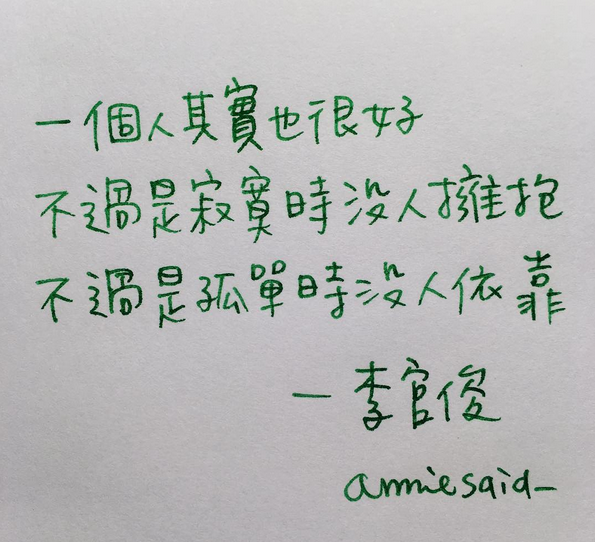 一個人其實也很好
不過是寂寞時沒人擁抱
不過是孤單時沒人依靠
一李官俊
anniesaid_